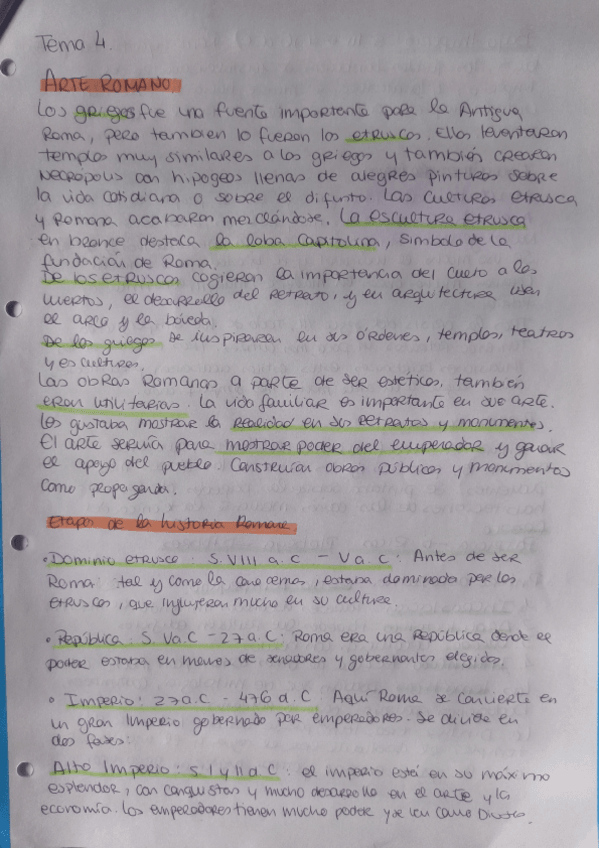 Tema 4.
ARTE ROMANO
Los griegos fue una fuente importante para la Antigua
Roma, pero tambien lo fueron los etruscos. Ellos levantaron
templos muy similares a los griegos y también crearon
necropolis con hipogeos llenas de alegres pinturas sobre
la vida cotidiana o sobre el difunto. Las culturas etrusca
y Romana acabaron mezclándose. La escultura etrusca
en bronce destaca la loba Capitolina, simbolo de la
fundación de Roma.
De los etruscos cogieron la importancia del culto a los
muertos, el desarrollo del retrato, y en arquitectura usan
el arco y la bóveda.
De los griegos se inspiraron en sus órdenes, templos, teatros
y esculturas.
Las obras Romanas a parte de ser estéticos, también
eran utilitarias. La vida familiar es importante en sue arte.
Les gustaba mostrar la realidad en sus retratos y monumentos.
El arte servía para mostrar poder del emperador y ganar
el apoyo del pueblo. Construían obras públicas y monumentos
como propaganda.
Etapas de la historia Romana
• Dominio etrusco: S. VIII a.C - V a.C: Antes de ser
Roma tal y como la conocemos, estaba dominada por los
etruscos, que influyeron mucho en su cultura.
• República: S. Va.C - 27 a.C: Roma era una República donde el
poder estaba en manos de senadores y gobernantes elegidos.
• Imperio: 27 a.C - 476 d.C: Aquí Roma se convierte en
un gran Imperio gobernado por emperadores. Se divide en
dos fases:
Alto Imperio: s. I y II d C: el imperio está en su máximo
esplendor, con conquistas y mucho desarrollo en el arte y la
economía. Los emperadores tienen mucho poder y se ven como Dioses.